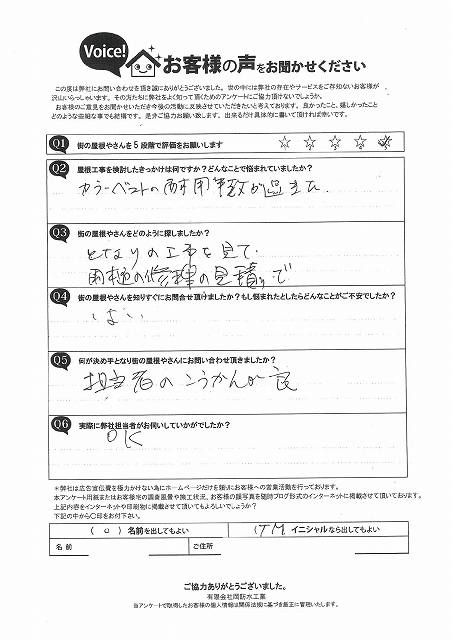 Voice! お客様の声をお聞かせください
この度は弊社にお問い合わせを頂き誠にありがとうございます。世の中には弊社の存在やサービスをご存知ないお客様が
沢山いらっしゃいます。その方たちに弊社をよく知って頂くためのアンケートにご協力頂けないでしょうか。
お客様のご意見をお聞かせいただき今後の活動に反映させていただきたいと考えております。良かったこと、嬉しかったこと
どのような些細な事でも結構です。是非ご協力お願い致します。出来るだけ具体的に書いて頂ければ幸いです。
Q1 街の屋根やさんを5段階で評価をお願いします ☆ ☆ ☆ ☆ ☆
Q2 屋根工事を検討したきっかけは何ですか？どんなことで悩まれていましたか？
カラーベストの耐用年数が過ぎた
Q3 街の屋根やさんをどのように探しましたか？
となりの工事を見て、
雨樋の修理の見積りで
Q4 街の屋根やさんを知りすぐにお問合せ頂けましたか？もし悩まれたとしたらどんなことがご不安でしたか？
はい
Q5 何が決め手となり街の屋根やさんにお問い合わせ頂きましたか？
担当者のこうかんが良
Q6 実際に弊社担当者がお伺いしていかがでしたか？
OK
＊弊社は広告宣伝費を極力かけない為にホームページだけを頼りにお客様への営業活動を行っております。
本アンケート用紙またはお客様宅の調査風景や施工状況、お客様の顔写真を随時ブログ形式のインターネットに掲載させて頂いております。
上記内容をインターネットや印刷物に掲載させて頂いてもよろしいでしょうか？
下記の中から〇印をお付下さい。
( o ) 名前を出してもよい ( TM イニシャルなら出してもよい
名 前 ご住所
ご協力ありがとうございました。
有限会社岡防水工業
当アンケートで取得したお客様の個人情報は関係法規に基づき厳正に管理いたします。